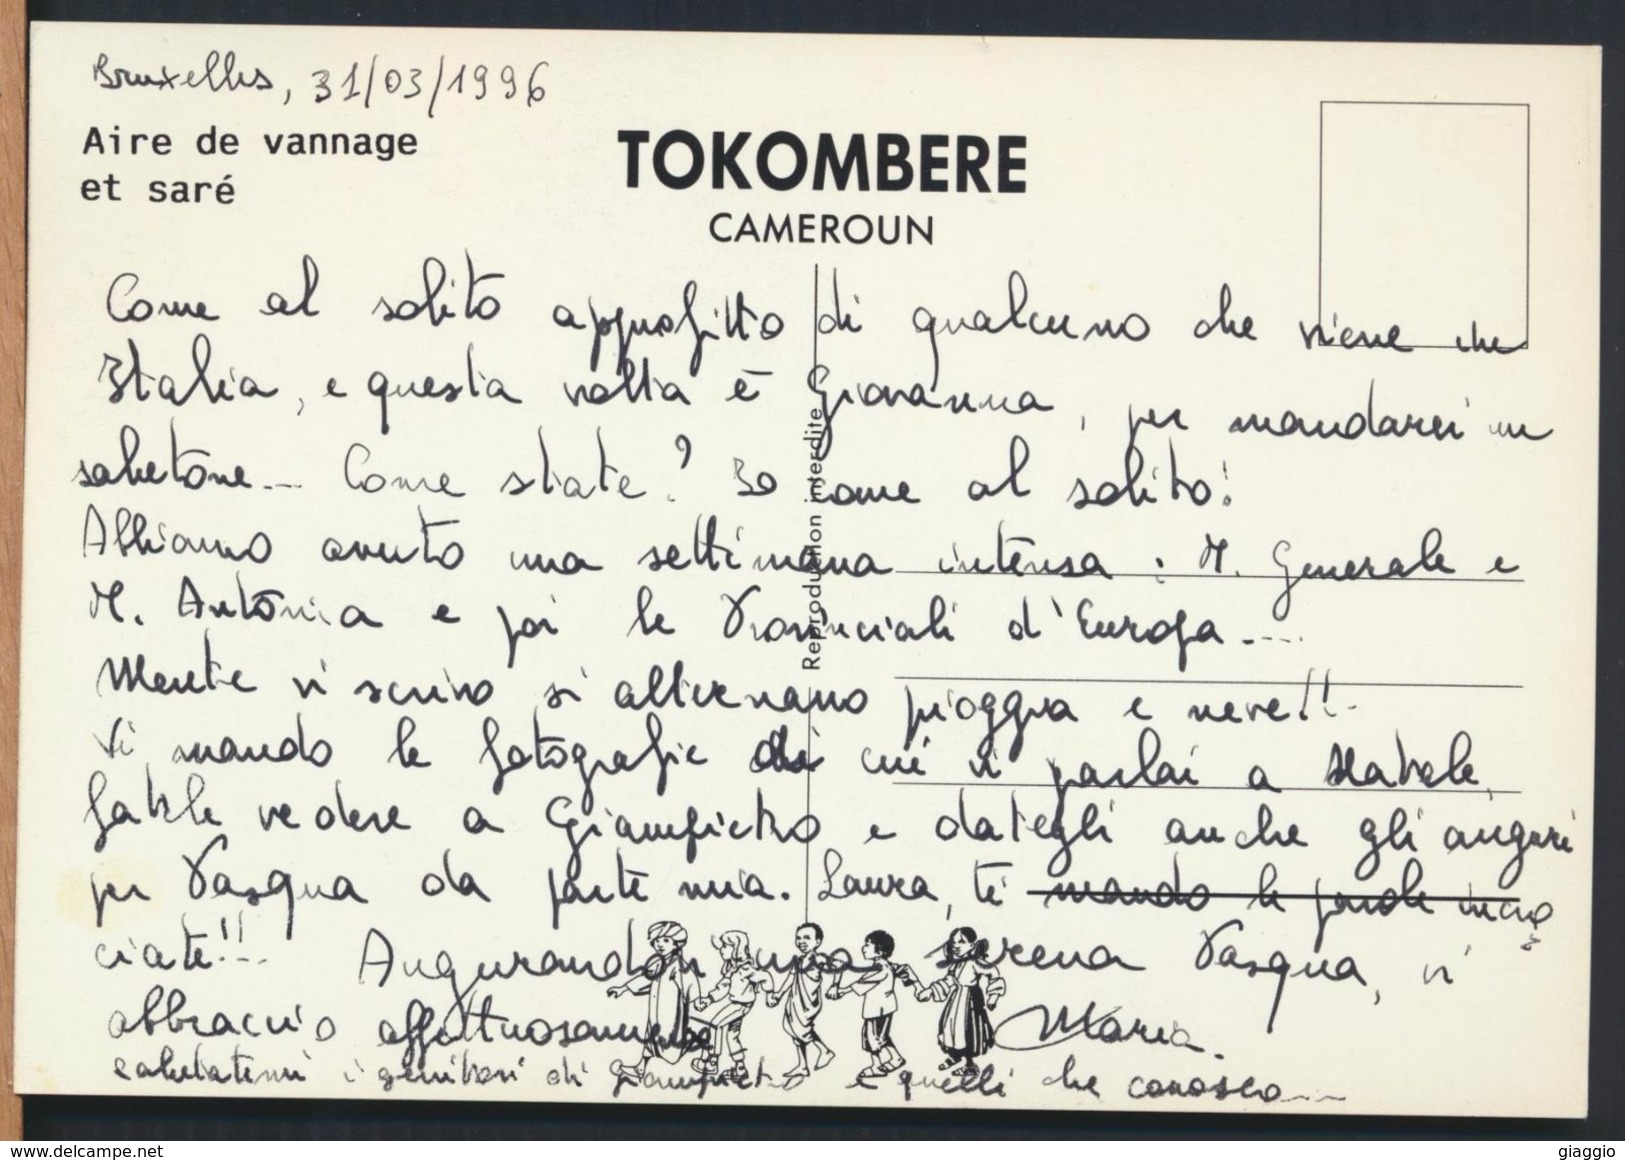 Bruxelles, 31/03/1996
Aire de vannage
et saré
TOKOMBERE
CAMEROUN
Come al solito approfitto di qualcuno che viene in
Italia, e questa volta è Giovanna, per mandarvi un
salutone... Come state? Io come al solito!
Abbiamo avuto una settimana intensa: M. Generale e
M. Antonia e poi le Provinciali d'Europa....
Mentre vi scrivo si alternano pioggia e neve!!
Vi mando le fotografie di cui vi parlai a Natale,
fatele vedere a Giampietro e dategli anche gli auguri
per Pasqua da parte mia. Laura, ti mando le parole incro
ciate!!.. Augurandovi una serena Pasqua, vi
abbraccio affettuosamente Maria.
salutatemi i genitori di Giampietro e quelli che conosco....
Reproduction interdite
www.delcampe.net
giaggio